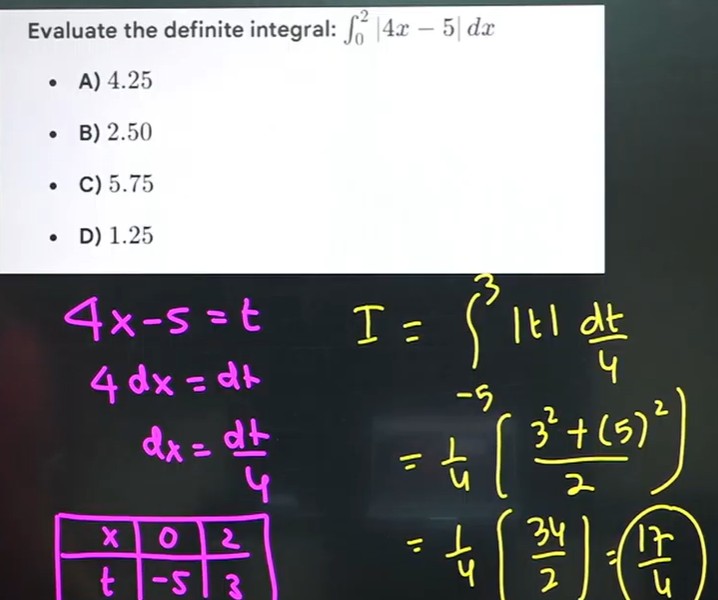 Evaluate the definite integral: ∫₀² |4x − 5| dx
• A) 4.25
• B) 2.50
• C) 5.75
• D) 1.25
4x-5=t
4 dx = dt
dx = dt/4
x | 0 | 2
t | -5 | 3
I = ∫₋₅³ |t| dt/4
= 1/4 [ (3² + (5)²)/2 ]
= 1/4 [ 34/2 ] = 17/4